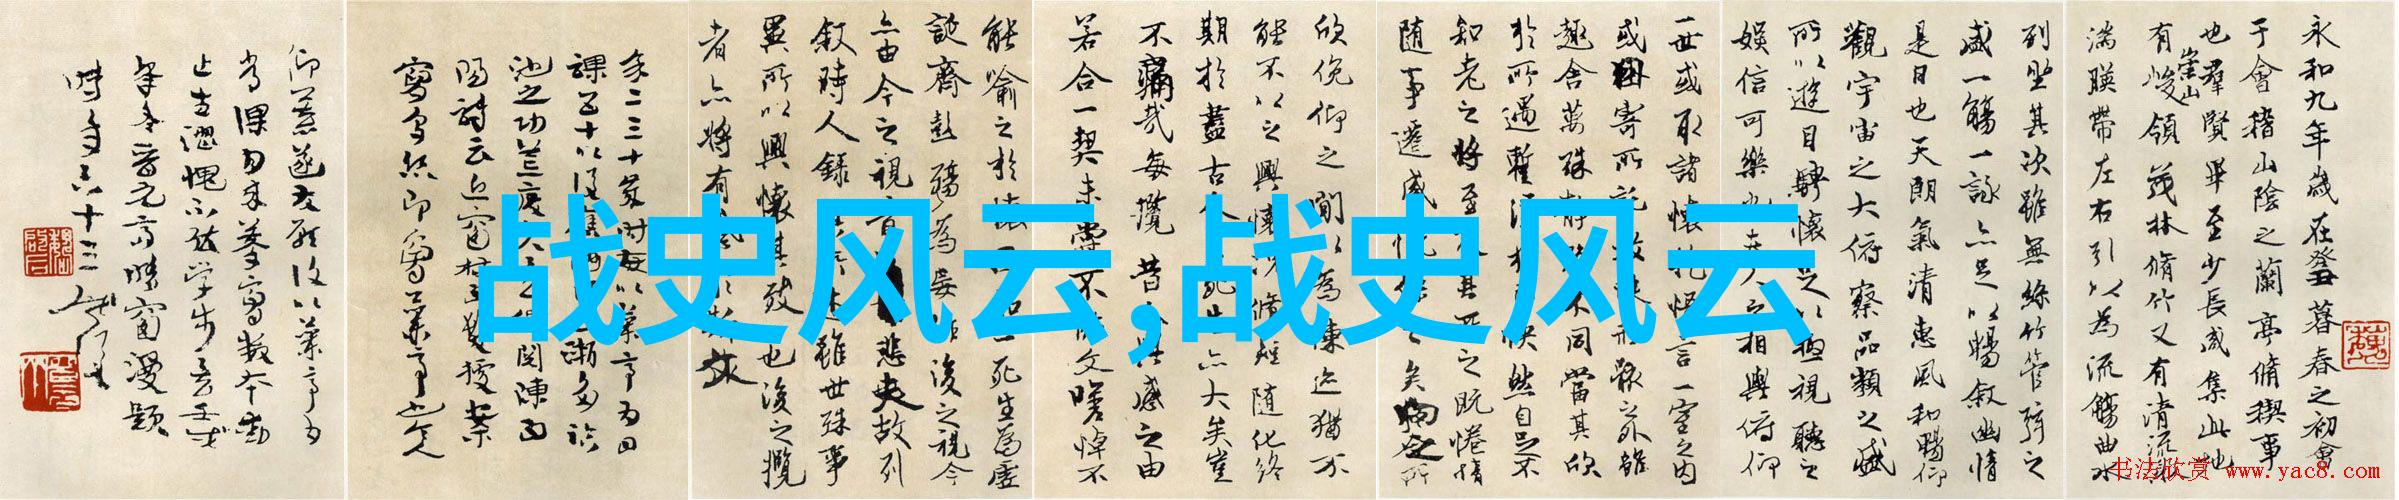 战史风云,战史风云
永和九年歲在癸丑暮春之初會
于會稽山陰之蘭亭脩稧事
也羣賢畢至少長咸集此地
有崇山峻領茂林脩竹又有清流激
湍暎帶左右引以為流觴曲水
列坐其次雖無絲竹管弦之
盛一觴一詠亦足以暢敘幽情
是日也天朗氣清惠風和暢仰
觀宇宙之大俯察品類之盛
所以遊目騁懷足以極視聽之
娛信可樂也夫人之相與俯仰
一世或取諸懷抱悟言一室之內
或因寄所託放浪形骸之外雖
趣舍萬殊靜躁不同當其欣
於所遇暫得於己快然自足不
知老之將至及其所之既惓情
隨事遷感慨係之矣向之所
欣俛仰之閒以為陳迹猶不
能不以之興懷況脩短隨化終
期於盡古人云死生亦大矣豈
不痛哉每攬昔人興感之由
若合一契未嘗不臨文嗟悼不
能喻之於懷固知一死生為虛
誕齊彭殤為妄作後之視今
亦由今之視昔悲夫故列
敘時人錄其所述雖世殊事
異所以興懷其致一也後之攬
者亦將有感於斯文
余二三十歲時每以蘭亭為日
池之功
時年六十三
书法欣赏 www.yac8.com